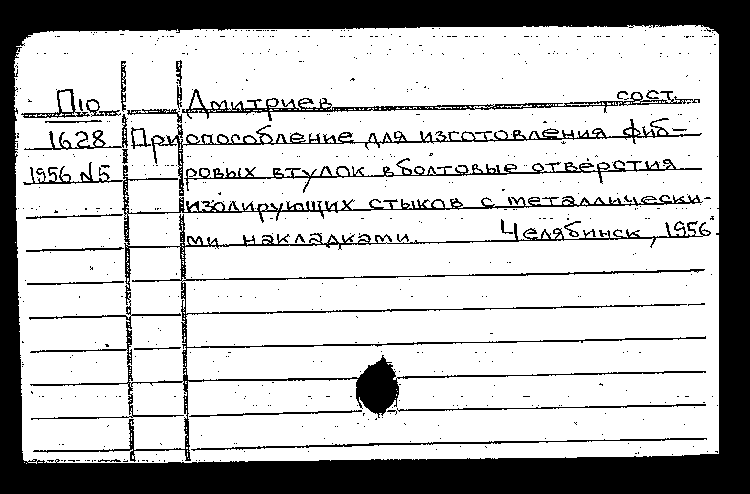 П10 Дмитриев, сост.
1628 Приспособление для изготовления фиб-
1956 N5 ровых втулок в болтовые отверстия
изолирующих стыков с металлически-
ми накладками. Челябинск, 1956.